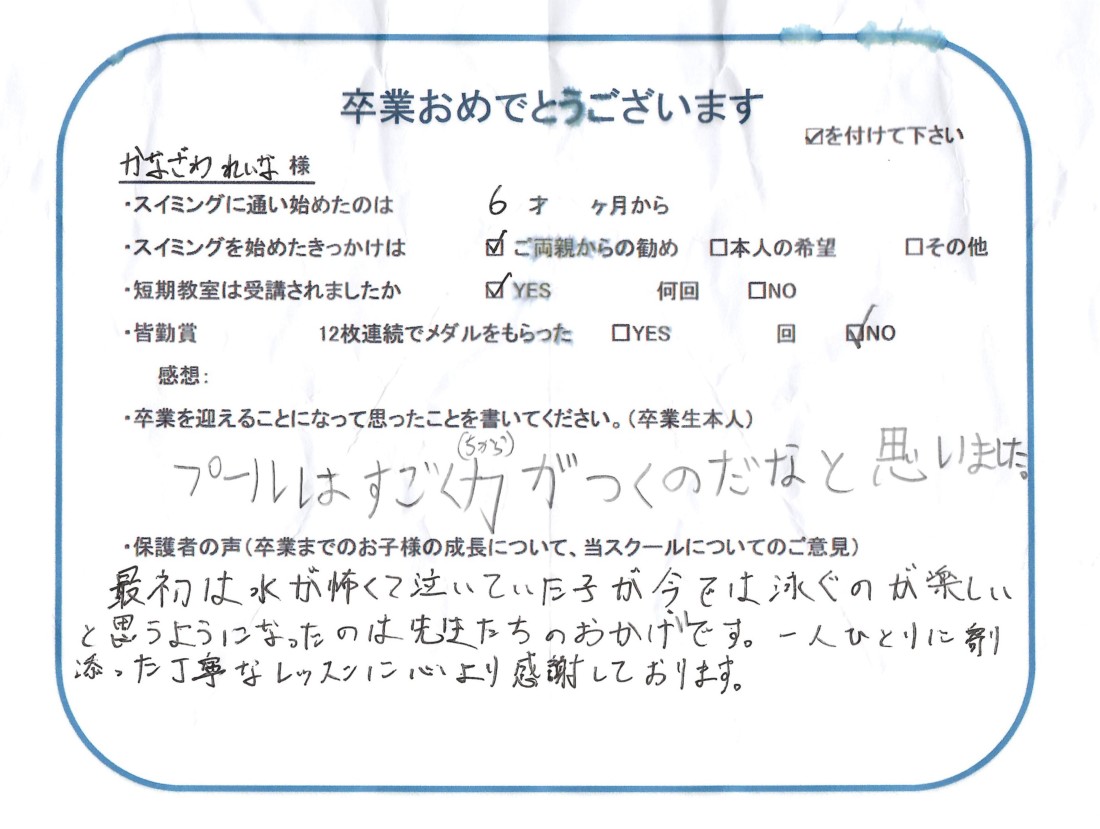 卒業おめでとうございます
☑を付けて下さい
かなざわ れいな 様
・スイミングに通い始めたのは 6 才 ヶ月から
・スイミングを始めたきっかけは ☑ご両親からの勧め □本人の希望 □その他
・短期教室は受講されましたか ☑YES 何回 □NO
・皆勤賞 12枚連続でメダルをもらった □YES 回 ☑NO
感想：
・卒業を迎えることになって思ったことを書いてください。（卒業生本人）
(ちから)
プールはすごく力がつくのだなと思いました。
・保護者の声（卒業までのお子様の成長について、当スクールについてのご意見）
最初は水が怖くて泣いていた子が今では泳ぐのが楽しい
と思うようになったのは先生たちのおかげです。一人ひとりに割
添った丁寧なレッスンに心より感謝しております。